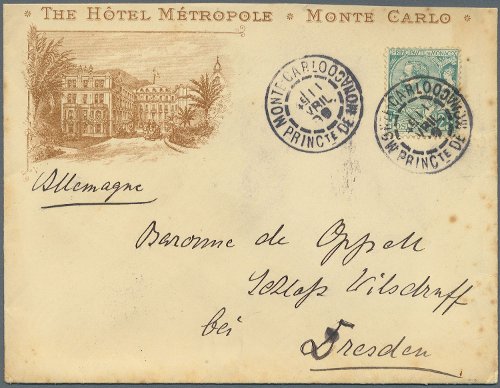 * THE HÔTEL MÉTROPOLE * MONTE CARLO *
MONTE-CARLO
11
AVRIL
PRINCTÉ DE MONACO
MONTE-CARLO
AVRIL
PRINCTÉ DE MONACO
Allemagne
Baronne de Oppell
Schloß Wilsdruff
bei
Dresden